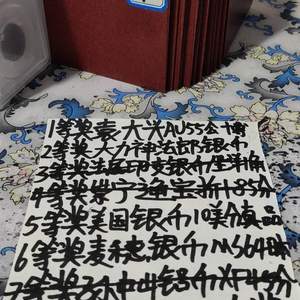 1等奖袁大头AU55公博
2等奖大力神法郎银币
3等奖法属印支银币坐洋
4等奖崇宁通宝折十85分
5等奖美国银币10美分真品
6等奖麦穗银币MS64
7等奖孙中山铝币XF45分